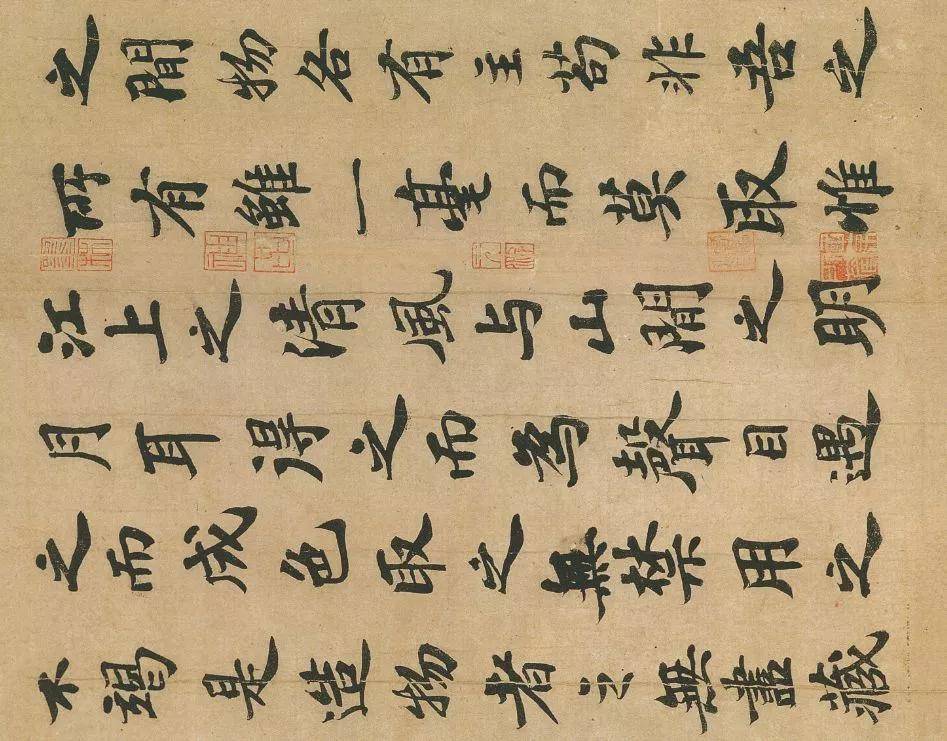 之間物各有主苟非吾之
所有雖一毫而莫取惟
江上之清風与山閒之明
月耳得之而為聲目遇
之而成色取之無禁用之
不竭是造物者之無盡藏